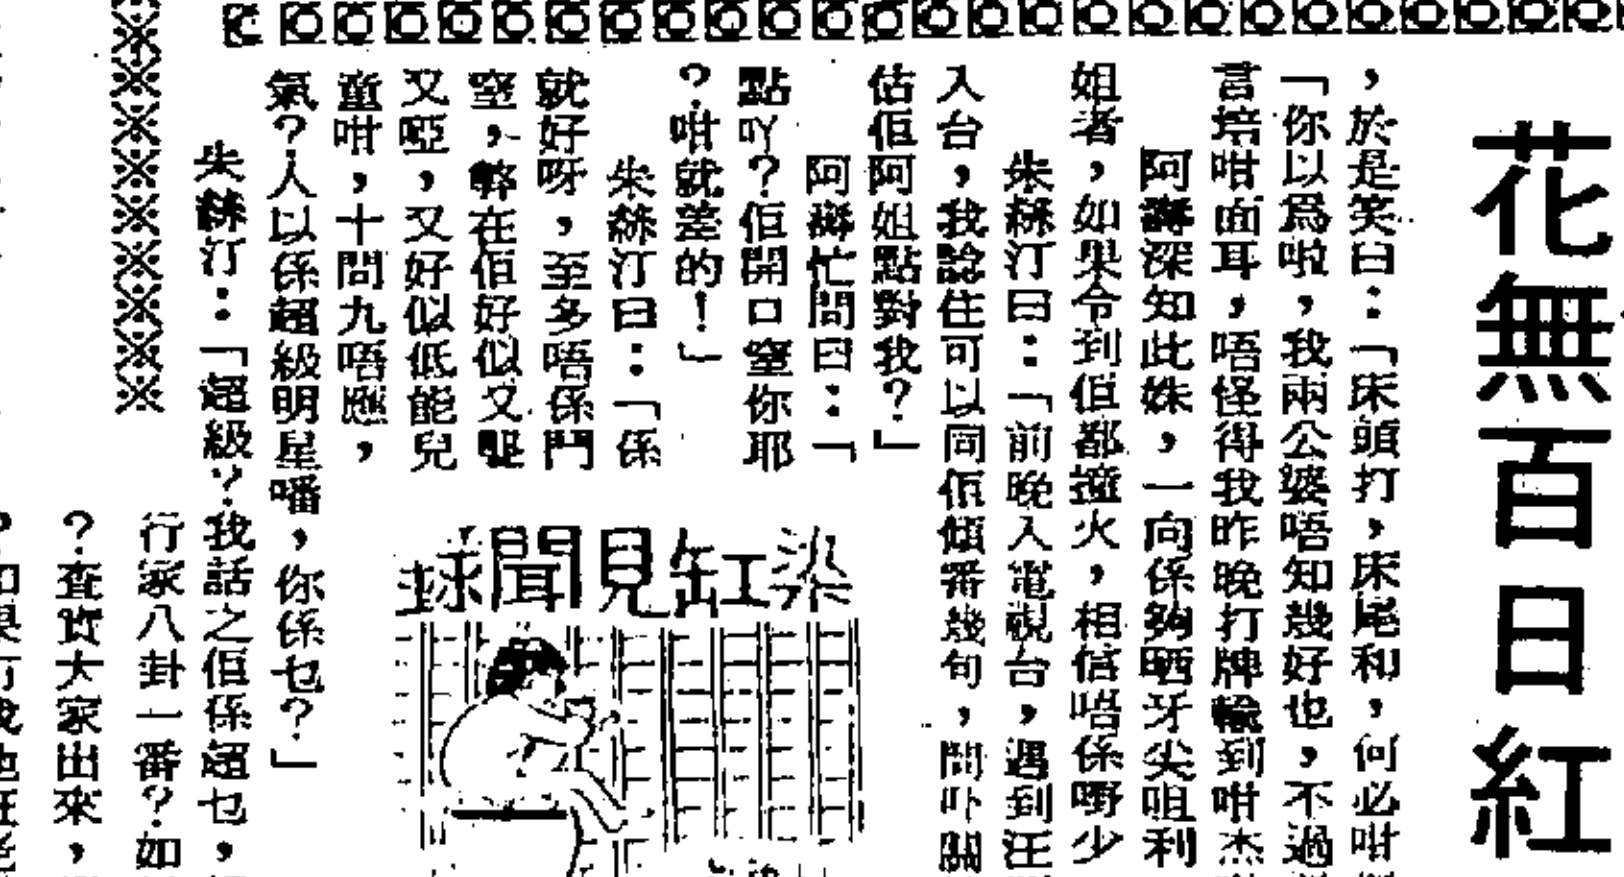 花無百日紅
，於是笑曰：「床頭打，床尾和，何必咁
「你以為啦，我兩公婆唔知幾好也，不過
言掊咁面耳，唔怪得我昨晚打牌輸到咁杰
阿壽深知此姝，一向係夠晒牙尖咀利
姐者，如果令到佢都撞火，相信唔係嘢少
朱絲汀曰：「前晚入電視台，遇到汪
入台，我諗住可以同佢傾番幾句，問吓關
估佢阿姐點對我？」
阿壽忙問曰：「
點吖？佢開口窒你耶
？咁就差的！」
朱絲汀曰：「係
就好呀，至多唔係鬥
窒，弊在佢好似又聾
又啞，又好似低能兒
童咁，十問九唔應，
氣？人以係超級明星噃，你係乜？」
朱絲汀：「超級？我話之佢係超乜，
行家八卦一番？如
？查實大家出來，
染缸見聞錄